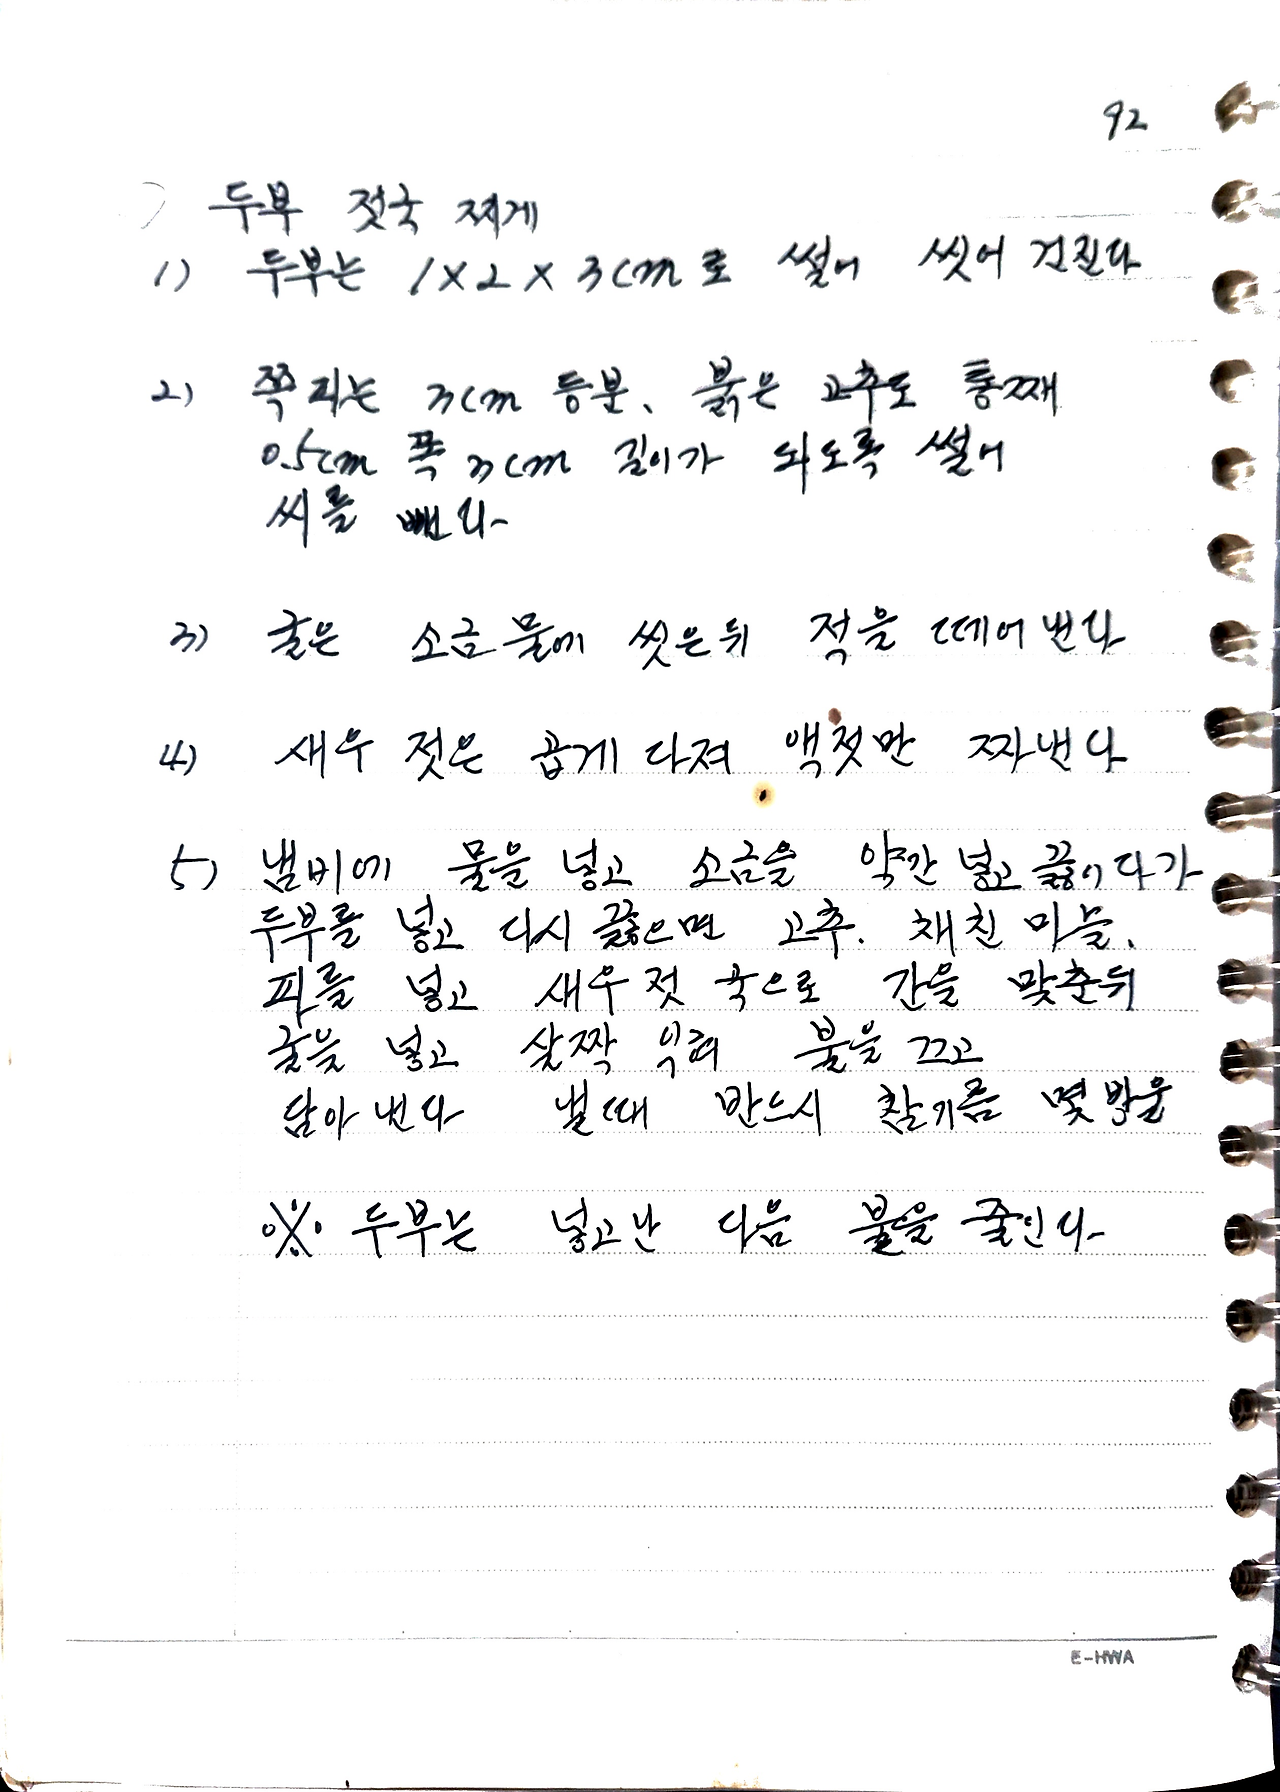 92
두부 젓국 찌게
1) 두부는 1X2X3cm로 썰어 씻어 건진다
2) 쪽파는 3cm 등분、 붉은 고추도 통째
0.5cm 폭 3cm 길이가 되도록 썰어
씨를 뺀다-
3) 굴은 소금물에 씻은뒤 적을 떼어낸다
4) 새우 젓은 곱게 다져 액젓만 짜낸다
5) 냄비에 물을 넣고 소금을 약간 넣고 끓이다가
두부를 넣고 다시 끓으면 고추. 채친 마늘、
파를 넣고 새우젓 국으로 간을 맞춘뒤
굴을 넣고 살짝 익혀 불을 끄고
담아낸다 낼때 반드시 참기름 몇방울
※ 두부는 넣고난 다음 불을 줄인다-
E-HWA